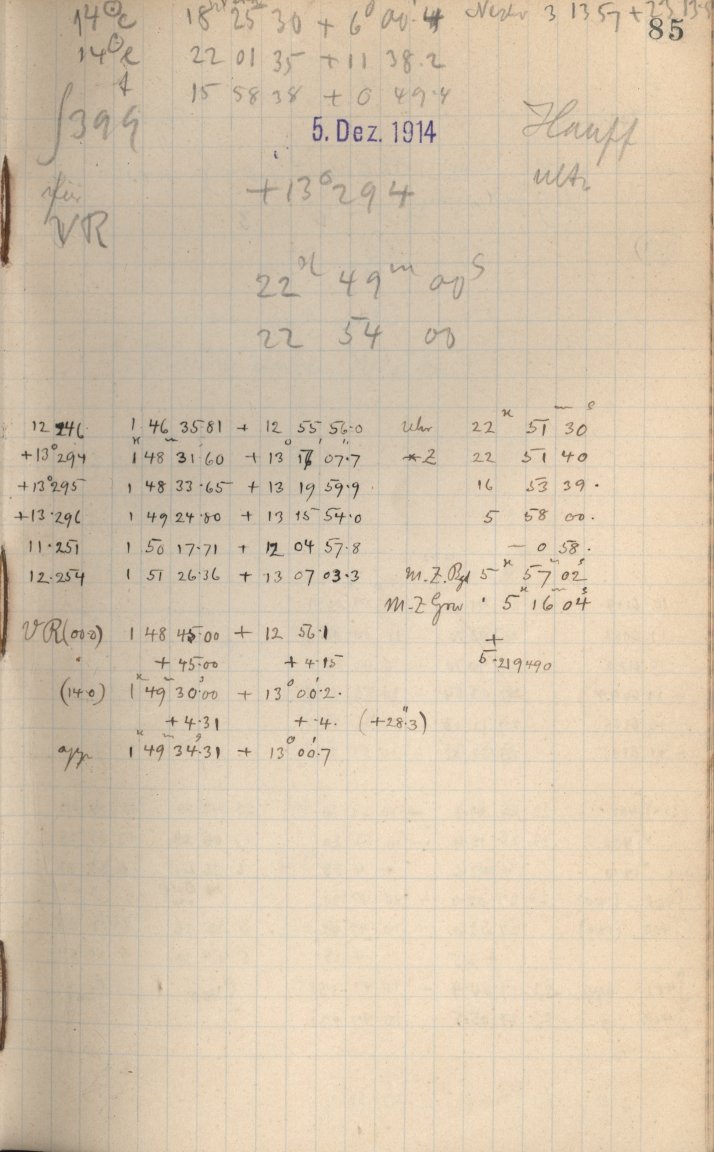 14 c 18 25 30 + 6° 00.4 3 13 57 + 23 13
85
14 c 22 01 35 + 11 38.2
15 58 38 + 0 49.4
399
5. Dez. 1914
Hauff
ultr.
für +13°294
VR
22ʰ 49ᵐ 00ˢ
22 54 00
12 246 1 46 35.81 + 12 55 56.0 Uhr 22ʰ 51ᵐ 30ˢ
+13°294 1ʰ 48ᵐ 31.60 + 13° 07.7 *Z 22 51 40
+13°295 1 48 33.65 + 13 19 59.9 16 53 39.
+13.296 1 49 24.80 + 13 15 54.0 5 58 00.
11.251 1 50 17.71 + 12 04 57.8 — 0 58.
12.254 1 51 26.36 + 13 07 03.3 M.Z. 5ʰ 57ᵐ 02ˢ
M.Z Grw 5ʰ 16ᵐ 04ˢ
VR(00.0) 1 48 45.00 + 12 56.1 +
+ 45.00 + 4.15 5.219490
(14.0) 1ʰ 49ᵐ 30.00ˢ + 13° 00.2'
+ 4.31 + .4. (+28.3")
app 1ʰ 49ᵐ 34.31ˢ + 13° 00.7'